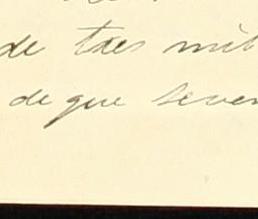 de tres mil
de que seven